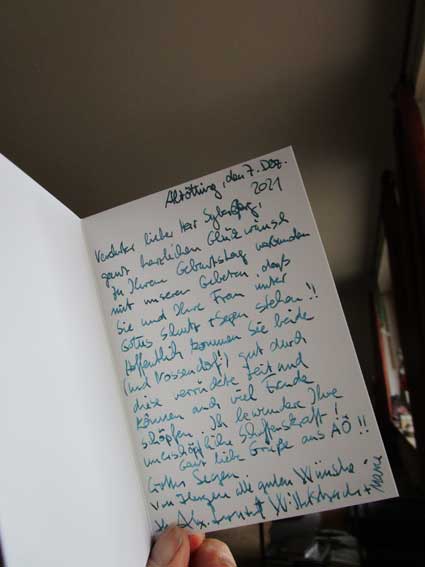 Altötting, den 7. Dez.
2021
Verehrter lieber Herr
ganz herzlichen Glückwunsch
zu Ihrem Geburtstag verbunden
mit unseren Gebeten, daß
Sie und Ihre Frau unter
Gottes Schutz + Segen stehen!!
Hoffentlich kommen Sie beide
(und Nossendorf!) gut durch
diese verrückte Zeit und
können auch viel Freude
schöpfen. Ich bewundere Ihre
unerschöpfliche Schaffenskraft!
Ganz liebe Grüße aus AÖ!!
Gottes Segen.
Von Herzen alle guten Wünsche!